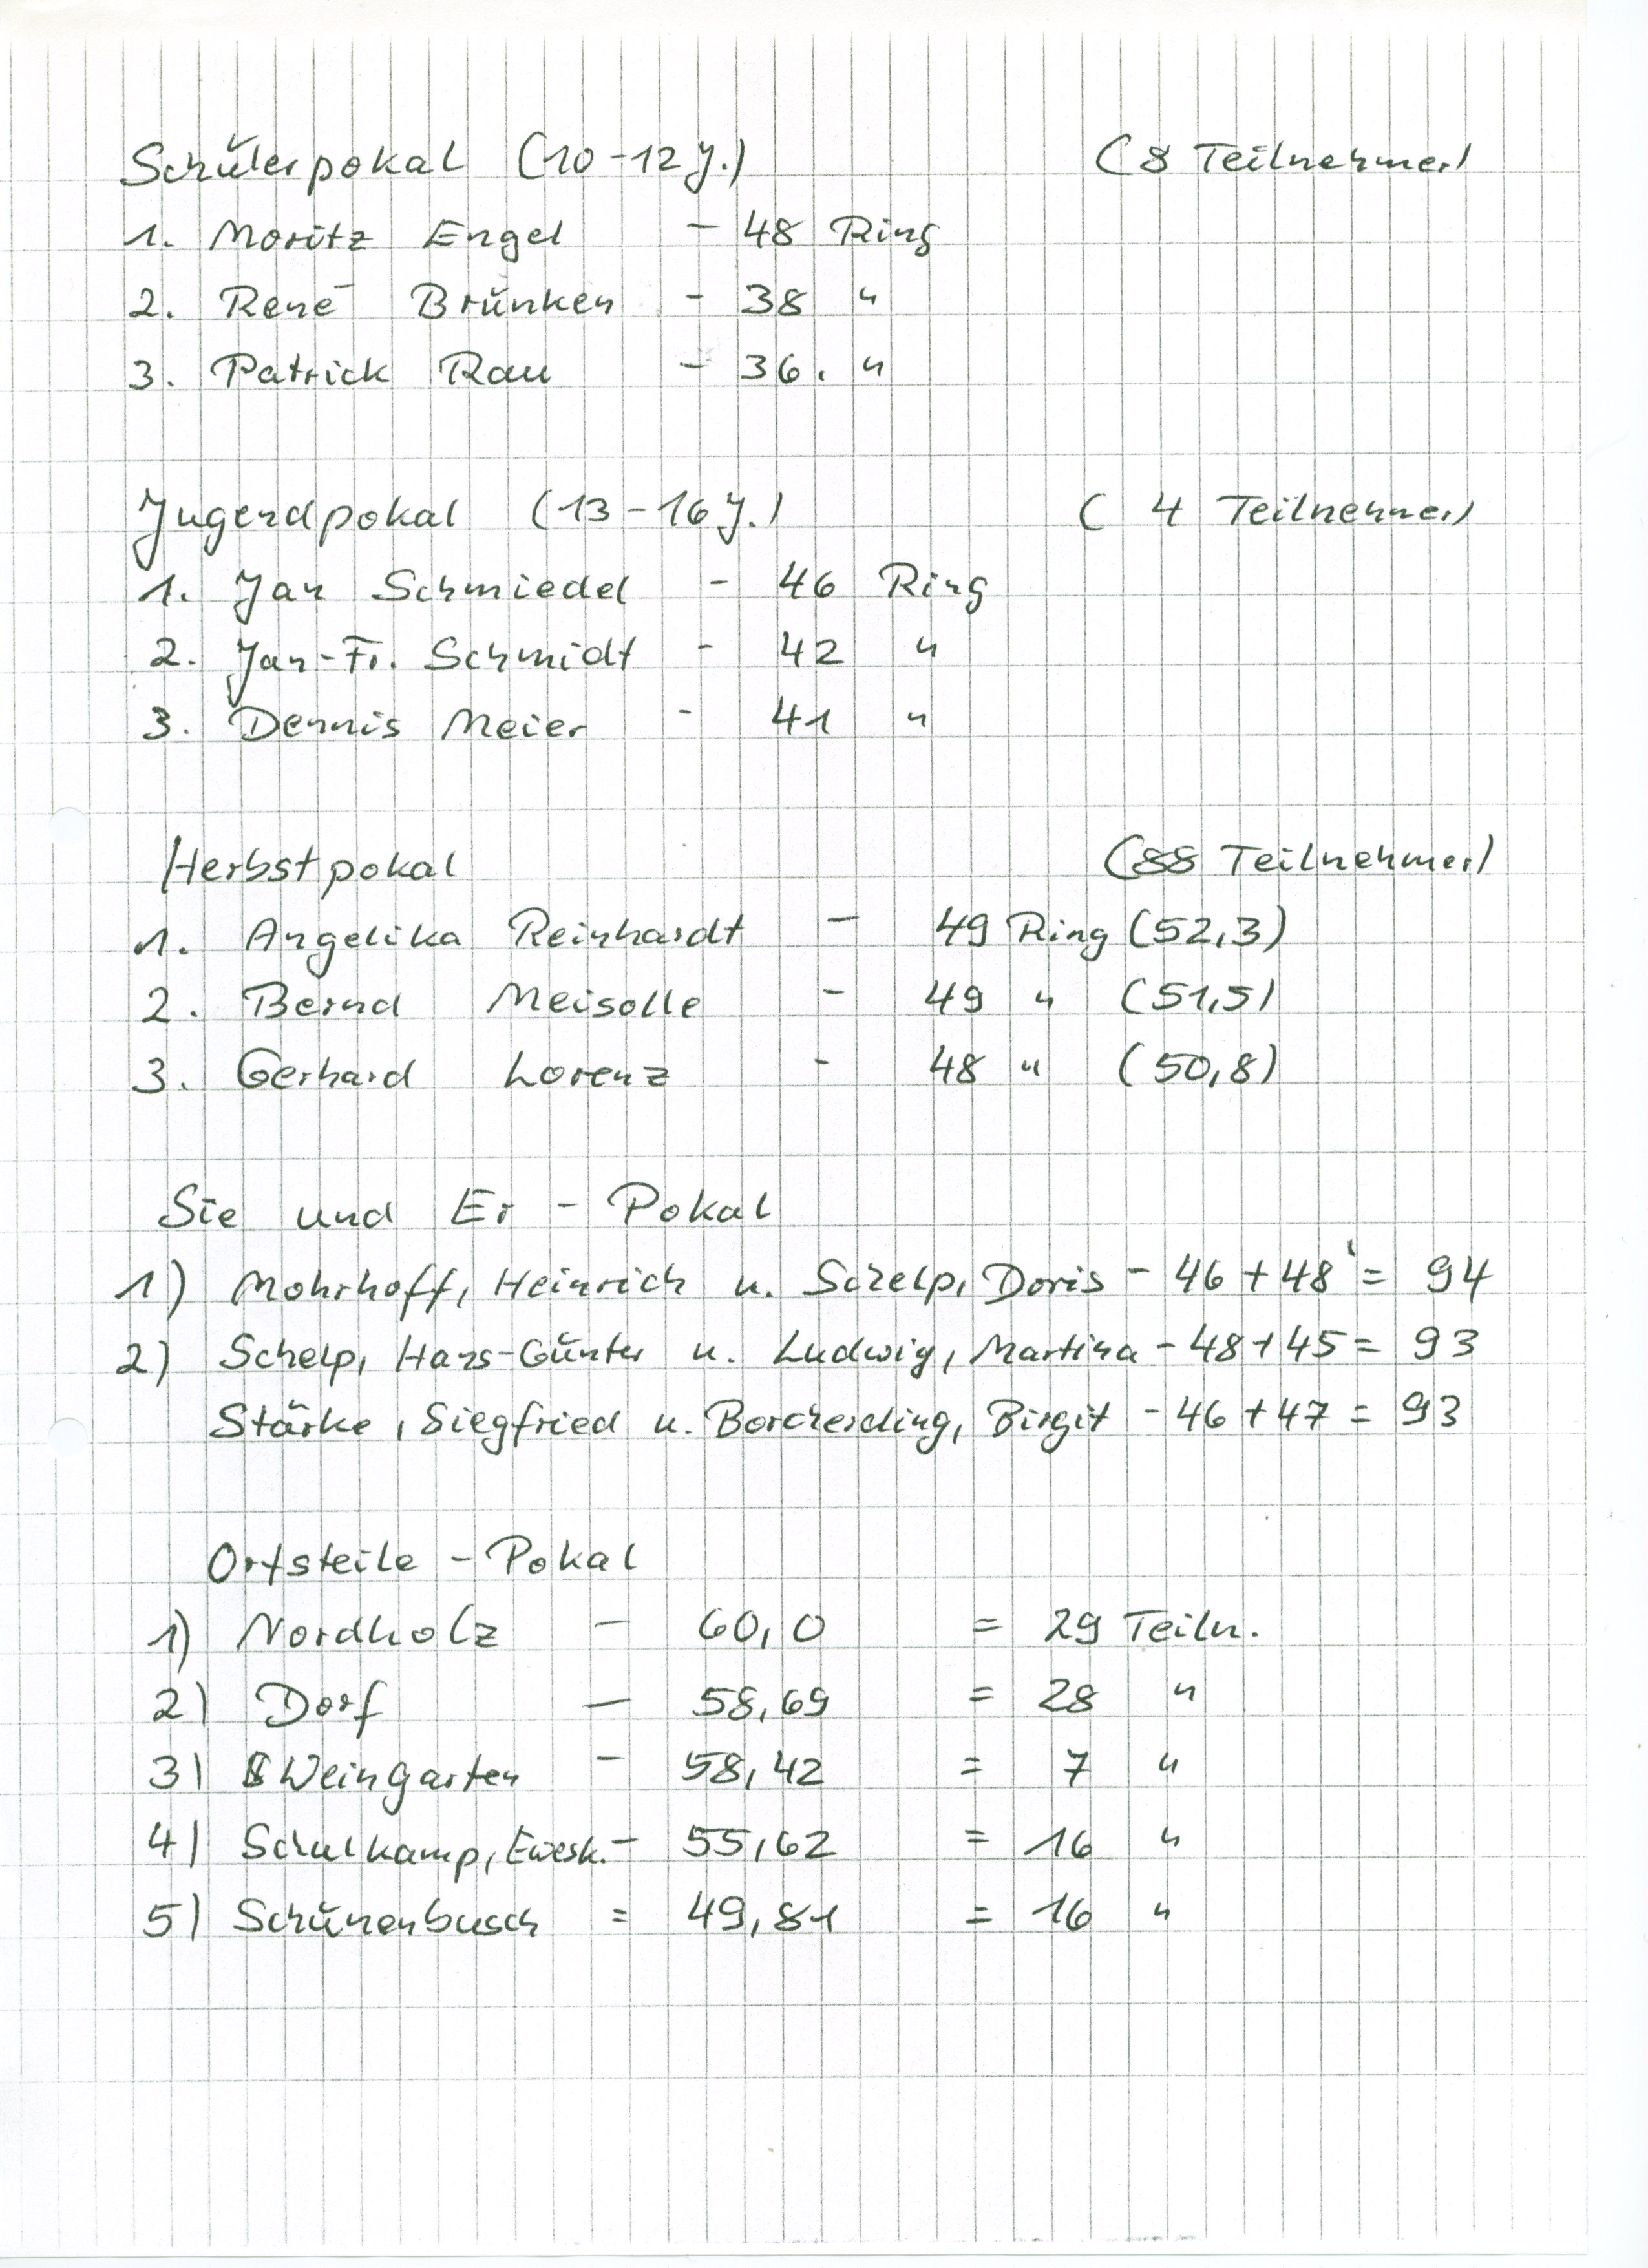 Schülerpokal (10-12 J.) (8 Teilnehmer)
1. Moritz Engel - 48 Ring
2. René Brünken - 38 "
3. Patrick Rau - 36. "
Jugendpokal (13-16 J.) (4 Teilnehmer)
1. Jan Schmiedel - 46 Ring
2. Jan-Fr. Schmidt - 42 "
3. Dennis Meier - 41 "
Herbstpokal (88 Teilnehmer)
1. Angelika Reinhardt - 49 Ring (52,3)
2. Bernd Meisolle - 49 " (51,5)
3. Gerhard Lorenz - 48 " (50,8)
Sie und Er - Pokal
1) Mohrhoff, Heinrich u. Schelp, Doris - 46 + 48 = 94
2) Schelp, Hans-Günter u. Ludwig, Martina - 48 + 45 = 93
Stärke, Siegfried u. Borcherding, Birgit - 46 + 47 = 93
Ortsteile - Pokal
1) Nordholz - 60,0 = 29 Teiln.
2) Dorf - 58,69 = 28 "
3) Weingarten - 58,42 = 7 "
4) Schulkamp, - 55,62 = 16 "
5) Schünenbusch = 49,81 = 16 "